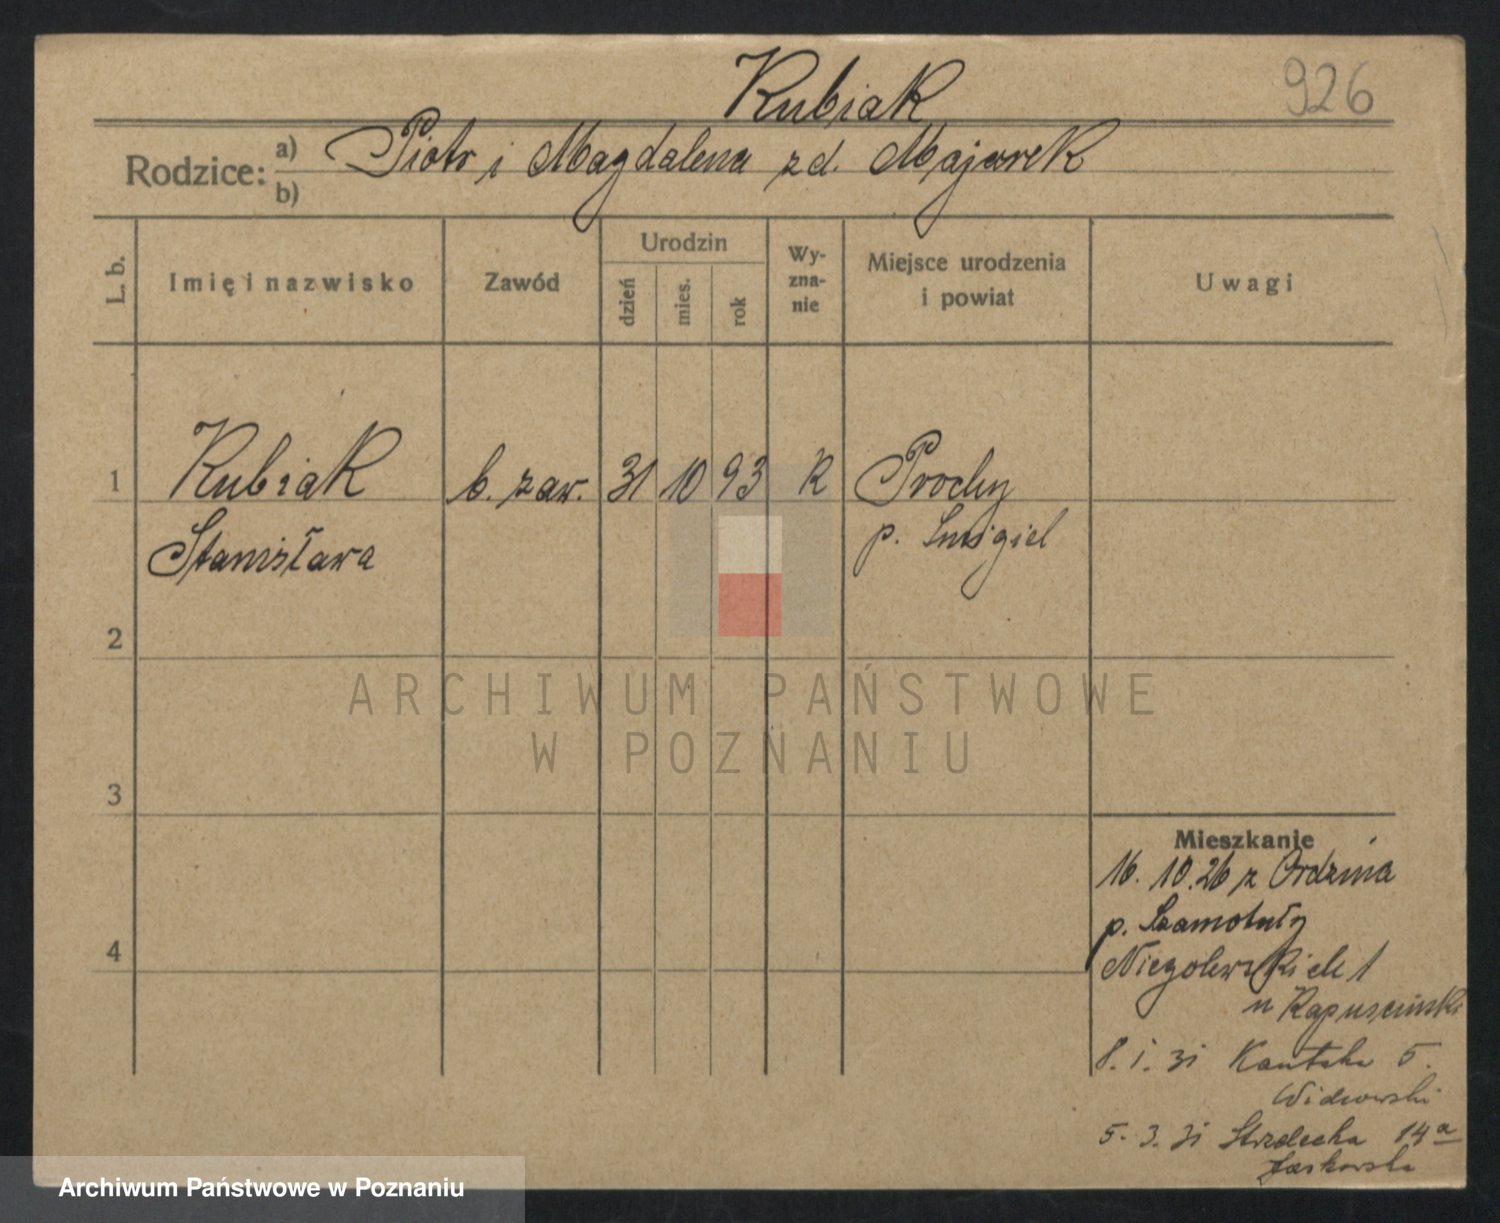 Kubiak
926
Rodzice: a) Piotr i Magdalena z d. Majorek
b)
L. b.
Imię i nazwisko
Zawód
Urodzin
dzień
mies.
rok
Wy-
zna-
nie
Miejsce urodzenia
i powiat
Uwagi
1 Kubiak b. zaw. 31 10 93 K Prochy
Stanisława p. Smigiel
2
ARCHIWUM PAŃSTWOWE
W POZNANIU
3
Mieszkanie
16. 10. 26 z Ordzina
p. Szamotuły
4
Niegolewskich 1
u Kapuscinski
8. 1. 31 Kantaka 5.
5. 3. 31 Strzelecka 14a
Jaskowska
Archiwum Państwowe w Poznaniu